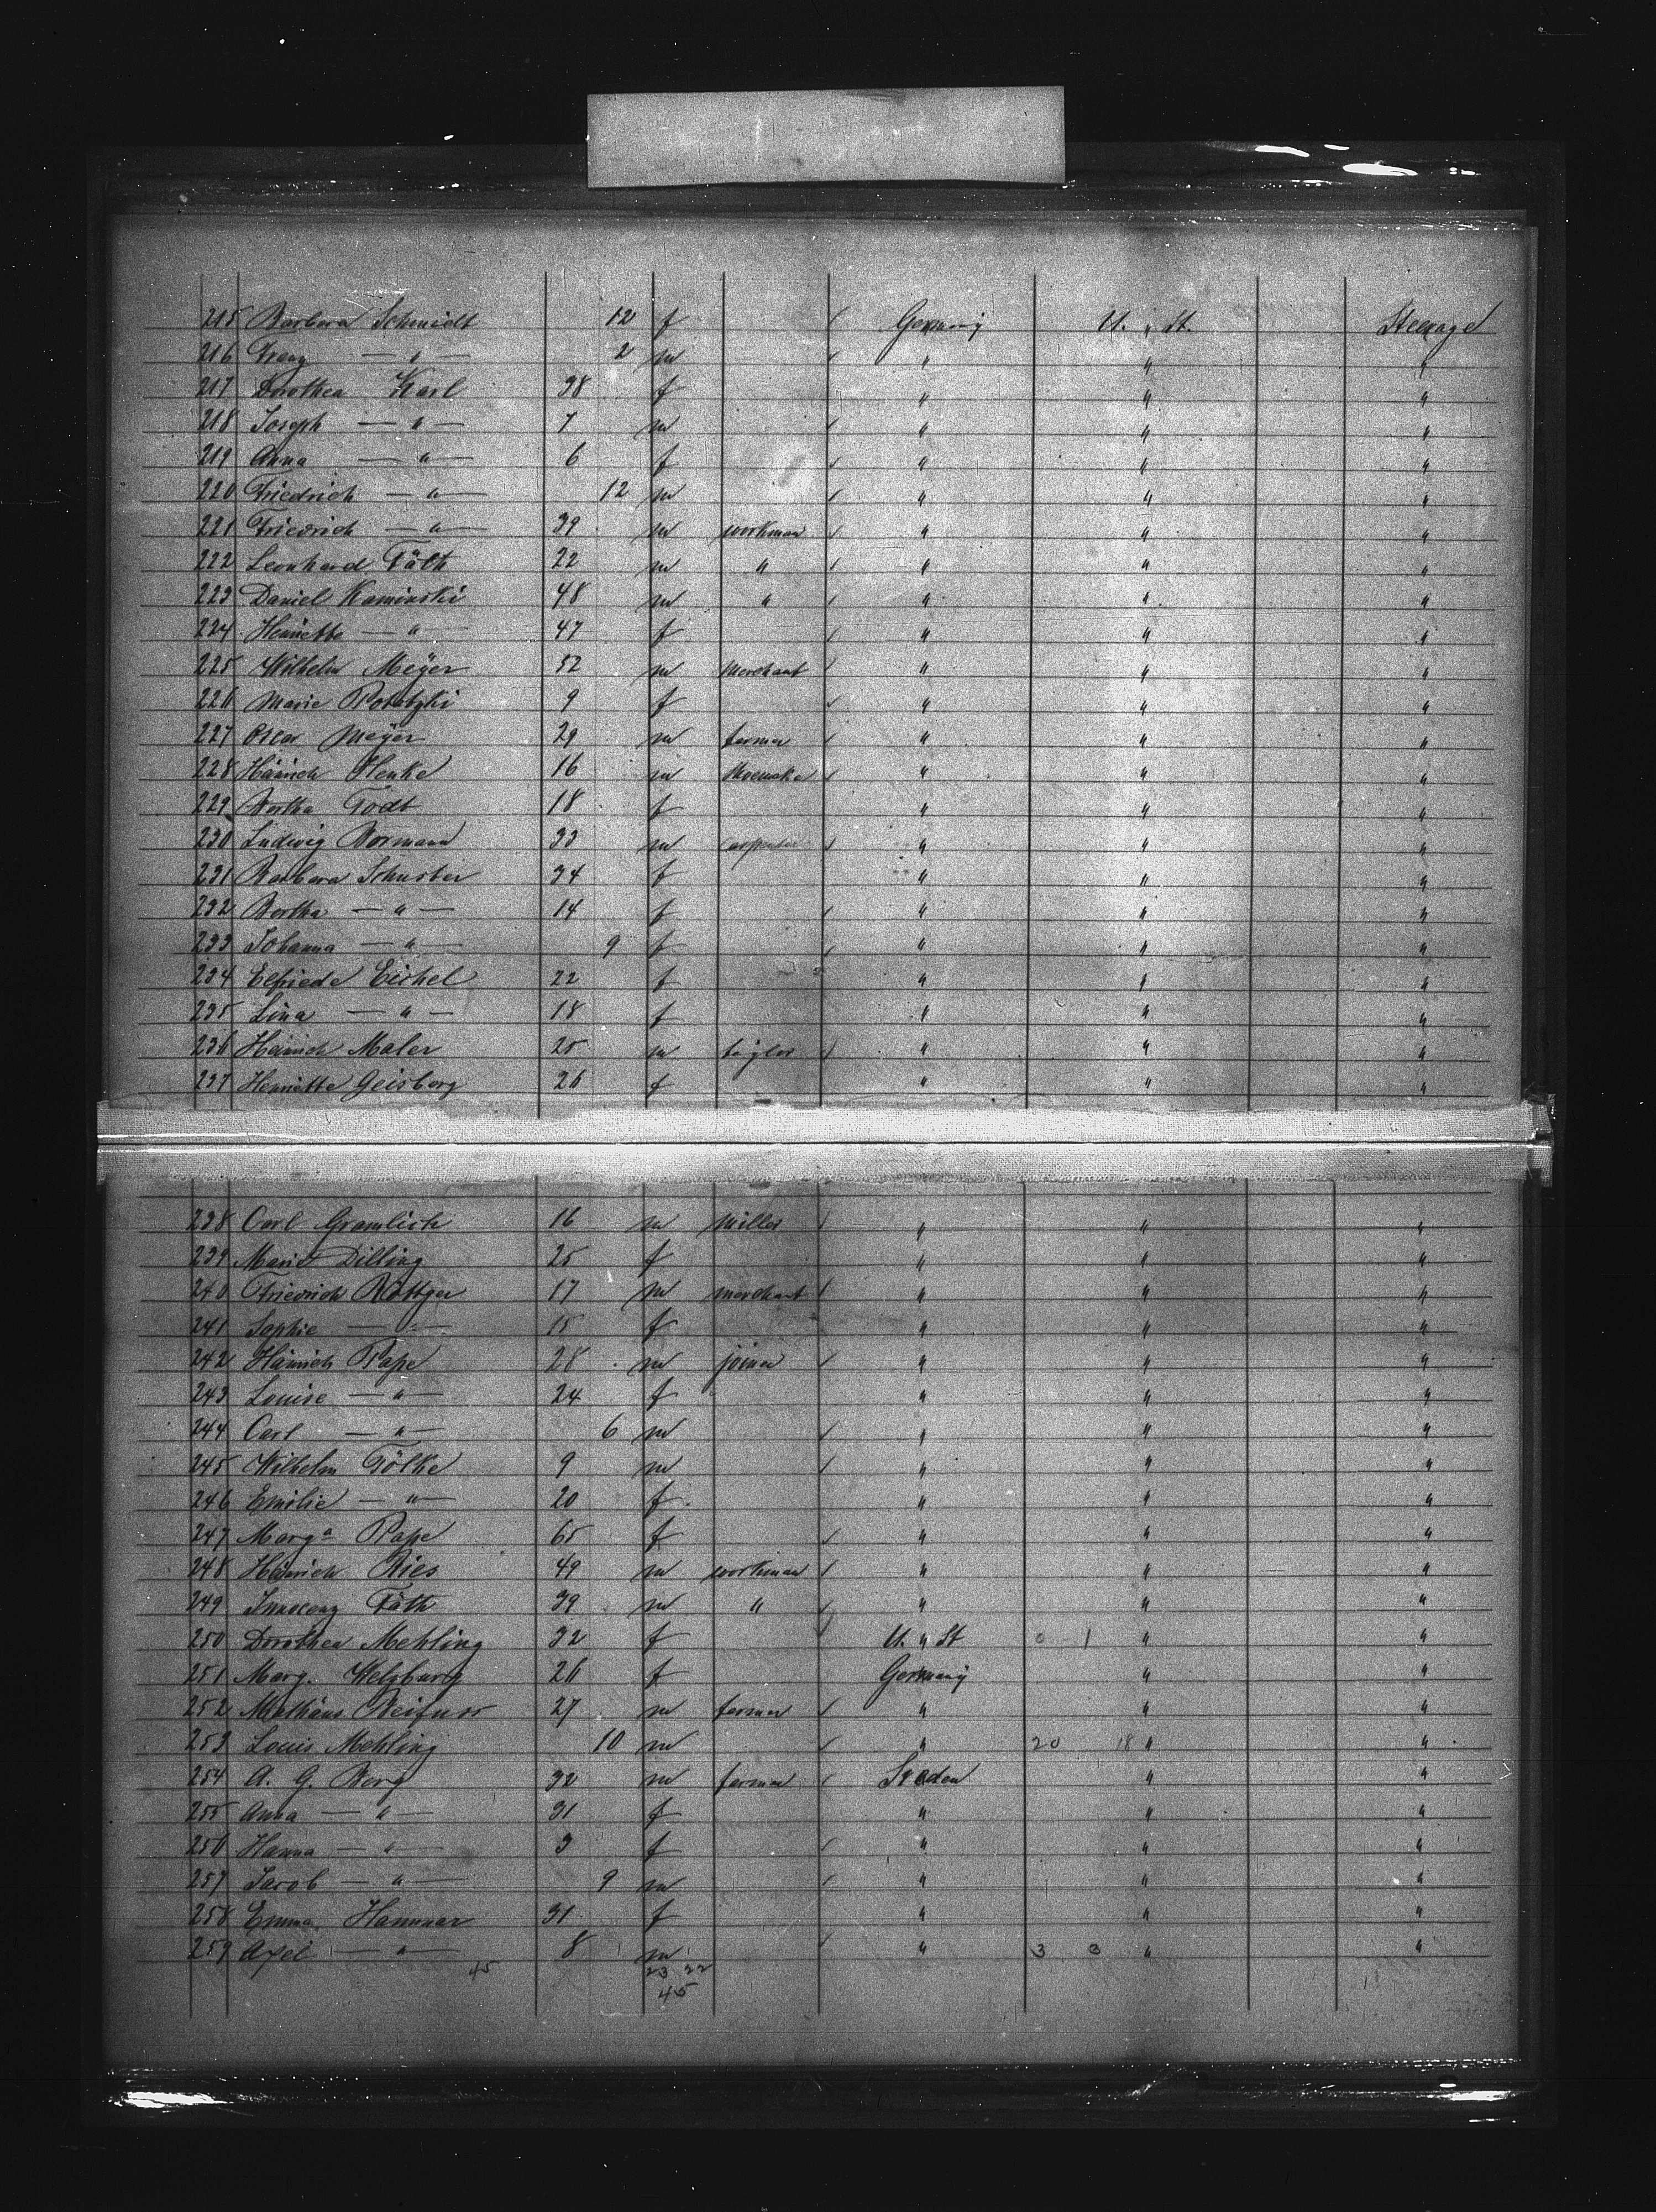 215 Barbara Schmidt 12 f Germany U. " St. Steerage
216 Franz — " — 2 m " " "
217 Dorothea Karl 38 f " " "
218 Joseph — " — 7 m " " "
219 Anna — " — 6 f " " "
220 Friedrich — " — 12 m " " "
221 Friedrich — " — 39 m workman " " "
222 Leonhard Fäth 22 m " " " "
223 Daniel Kaminski 48 m " " " "
224 Henriette — " — 47 f " " "
225 Wilhelm Meyer 52 m merchant " " "
226 Marie 9 f " " "
227 Oscar Meyer 29 m farmer " " "
228 Heinrich Henke 16 m shoemaker " " "
229 Bertha Todt 18 f " " "
230 Ludwig Bormann 33 m carpenter " " "
231 Barbara Schuster 34 f " " "
232 Bertha — " — 14 f " " "
233 Johanna — " — 9 f " " "
234 Elfriede Eichel 22 f " " "
235 Lina — " — 18 f " " "
236 Heinrich Maler 25 m taylor " " "
237 Henriette Geisberg 26 f " " "
238 Carl Gramlich 16 m miller " " "
239 Marie Dilling 25 f " " "
240 Friedrich Röttger 17 m merchant " " "
241 Sophie — " — 15 f " " "
242 Heinrich Pape 28 m joiner " " "
243 Louise — " — 24 f " " "
244 Carl — " — 6 m " " "
245 Wilhelm Tölke 9 m " " "
246 Emilie — " — 20 f " " "
247 Marga Pape 65 f " " "
248 Heinrich Ries 49 m workman " " "
249 Innocenz Fäth 39 m " " " "
250 Dorothea Mehling 32 f U. " St 0 1 " "
251 Marg. Welzburg 26 f Germany " "
252 Mathäus Beifuss 27 m farmer " " "
253 Louis Mehling 10 m " 20 18 " "
254 A. G. Berg 32 m farmer Sveden " "
255 Anna — " — 31 f " " "
256 Hanna — " — 3 f " " "
257 Jacob — " — 9 m " " "
258 Emma Hammar 31 f " " "
259 Axel — " — 8 m " 3 3 " "
45 23 22
45